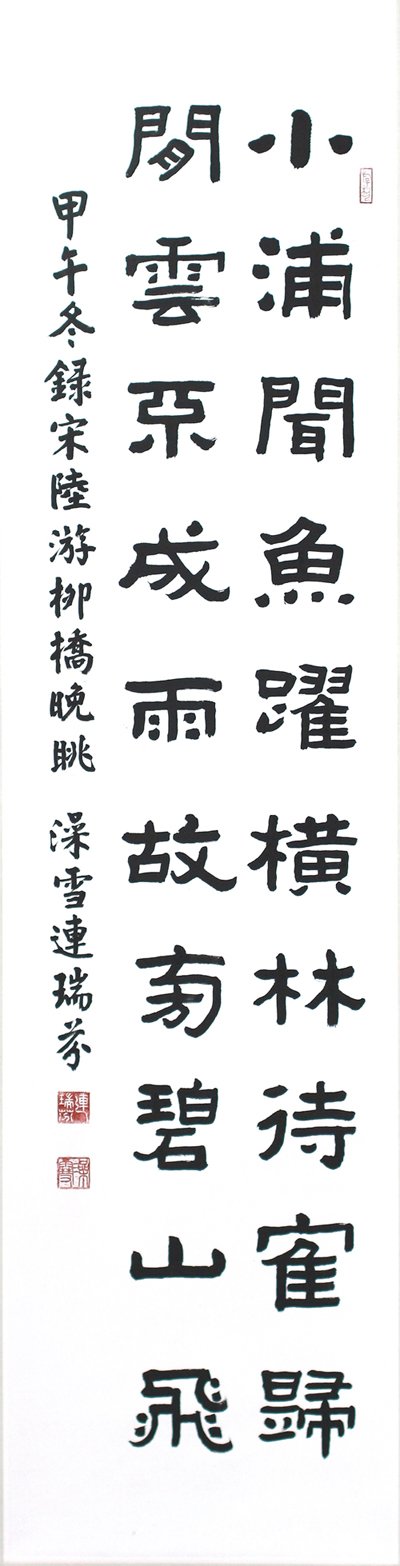 小浦聞魚躍橫林待隺歸
閒雲不成雨故旁碧山飛
甲午冬録宋陸游柳橋晚眺 澡雪連瑞芬
連瑞芬
澡雪